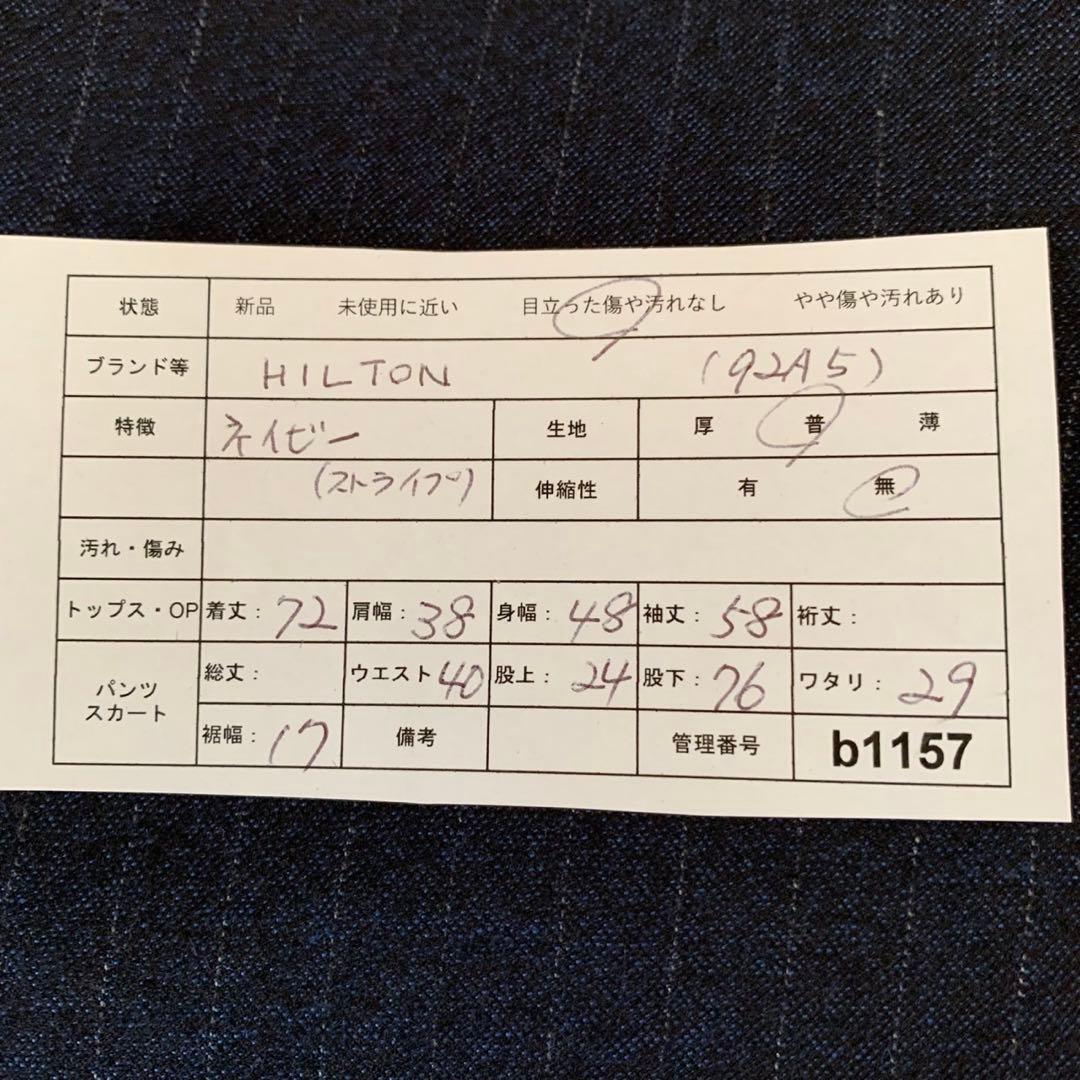 状態 新品 未使用に近い 目立った傷や汚れなし やや傷や汚れあり
ブランド等 HILTON (92A5)
特徴 ネイビー 生地 厚 普 薄
(ストライプ) 伸縮性 有 無
汚れ・傷み
トップス・OP 着丈: 72 肩幅: 38 身幅: 48 袖丈: 58 裄丈:
パンツ スカート 総丈: ウエスト 40 股上: 24 股下: 76 ワタリ: 29
裾幅: 17 備考 管理番号 b1157